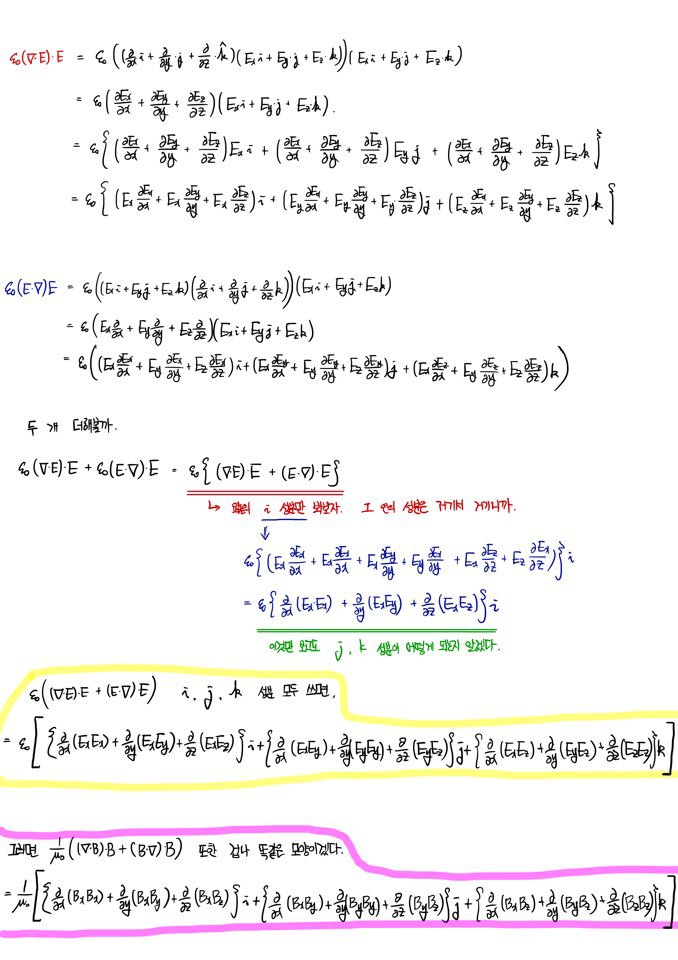 ε₀(∇·E)·E = ε₀((∂/∂x i + ∂/∂y j + ∂/∂z k̂)(Exi + Eyj + Ez·k))(Exi + Eyj + Ez·k)
= ε₀(∂Ex/∂x + ∂Ey/∂y + ∂Ez/∂z)(Exi + Eyj + Ezk).
= ε₀{(∂Ex/∂x + ∂Ey/∂y + ∂Ez/∂z)Exi + (∂Ex/∂x + ∂Ey/∂y + ∂Ez/∂z)Eyj + (∂Ex/∂x + ∂Ey/∂y + ∂Ez/∂z)Ezk}
= ε₀{(Ex ∂Ex/∂x + Ex ∂Ey/∂y + Ex ∂Ez/∂z)i + (Ey ∂Ex/∂x + Ey ∂Ey/∂y + Ey ∂Ez/∂z)j + (Ez ∂Ex/∂x + Ez ∂Ey/∂y + Ez ∂Ez/∂z)k}
ε₀(E·∇)E = ε₀((Exi + Eyj + Ezk)(∂/∂x i + ∂/∂y j + ∂/∂z k))(Exi + Eyj + Ezk)
= ε₀(Ex ∂/∂x + Ey ∂/∂y + Ez ∂/∂z)(Exi + Eyj + Ezk)
= ε₀((Ex ∂Ex/∂x + Ey ∂Ex/∂y + Ez ∂Ex/∂z)i + (Ex ∂Ey/∂x + Ey ∂Ey/∂y + Ez ∂Ey/∂z)j + (Ex ∂Ez/∂x + Ey ∂Ez/∂y + Ez ∂Ez/∂z)k)
두 개 더해볼까.
ε₀(∇·E)·E + ε₀(E·∇)·E = ε₀{(∇·E)·E + (E·∇)·E}
↳ i 성분만 봐보자. 그 외 성분은 거기서 거기니까.
↓
ε₀{(Ex ∂Ex/∂x + Ex ∂Ex/∂x + Ex ∂Ey/∂y + Ey ∂Ex/∂y + Ex ∂Ez/∂z + Ez ∂Ex/∂z)}i
= ε₀{∂/∂x(ExEx) + ∂/∂y(ExEy) + ∂/∂z(ExEz)}i
이것만 보고도 j, k 성분이 어떻게 되는지 알겠다.
ε₀((∇·E)·E + (E·∇)·E) i, j, k 성분 모두 쓰면,
= ε₀[{∂/∂x(ExEx) + ∂/∂y(ExEy) + ∂/∂z(ExEz)}i + {∂/∂x(ExEy) + ∂/∂y(EyEy) + ∂/∂z(EyEz)}j + {∂/∂x(ExEz) + ∂/∂y(EyEz) + ∂/∂z(EzEz)}k]
그러면 1/μ₀((∇·B)·B + (B·∇)·B) 또한 겁나 똑같은 모양이겠다.
= 1/μ₀[{∂/∂x(BxBx) + ∂/∂y(BxBy) + ∂/∂z(BxBz)}i + {∂/∂x(BxBy) + ∂/∂y(ByBy) + ∂/∂z(ByBz)}j + {∂/∂x(BxBz) + ∂/∂y(ByBz) + ∂/∂z(BzBz)}k]